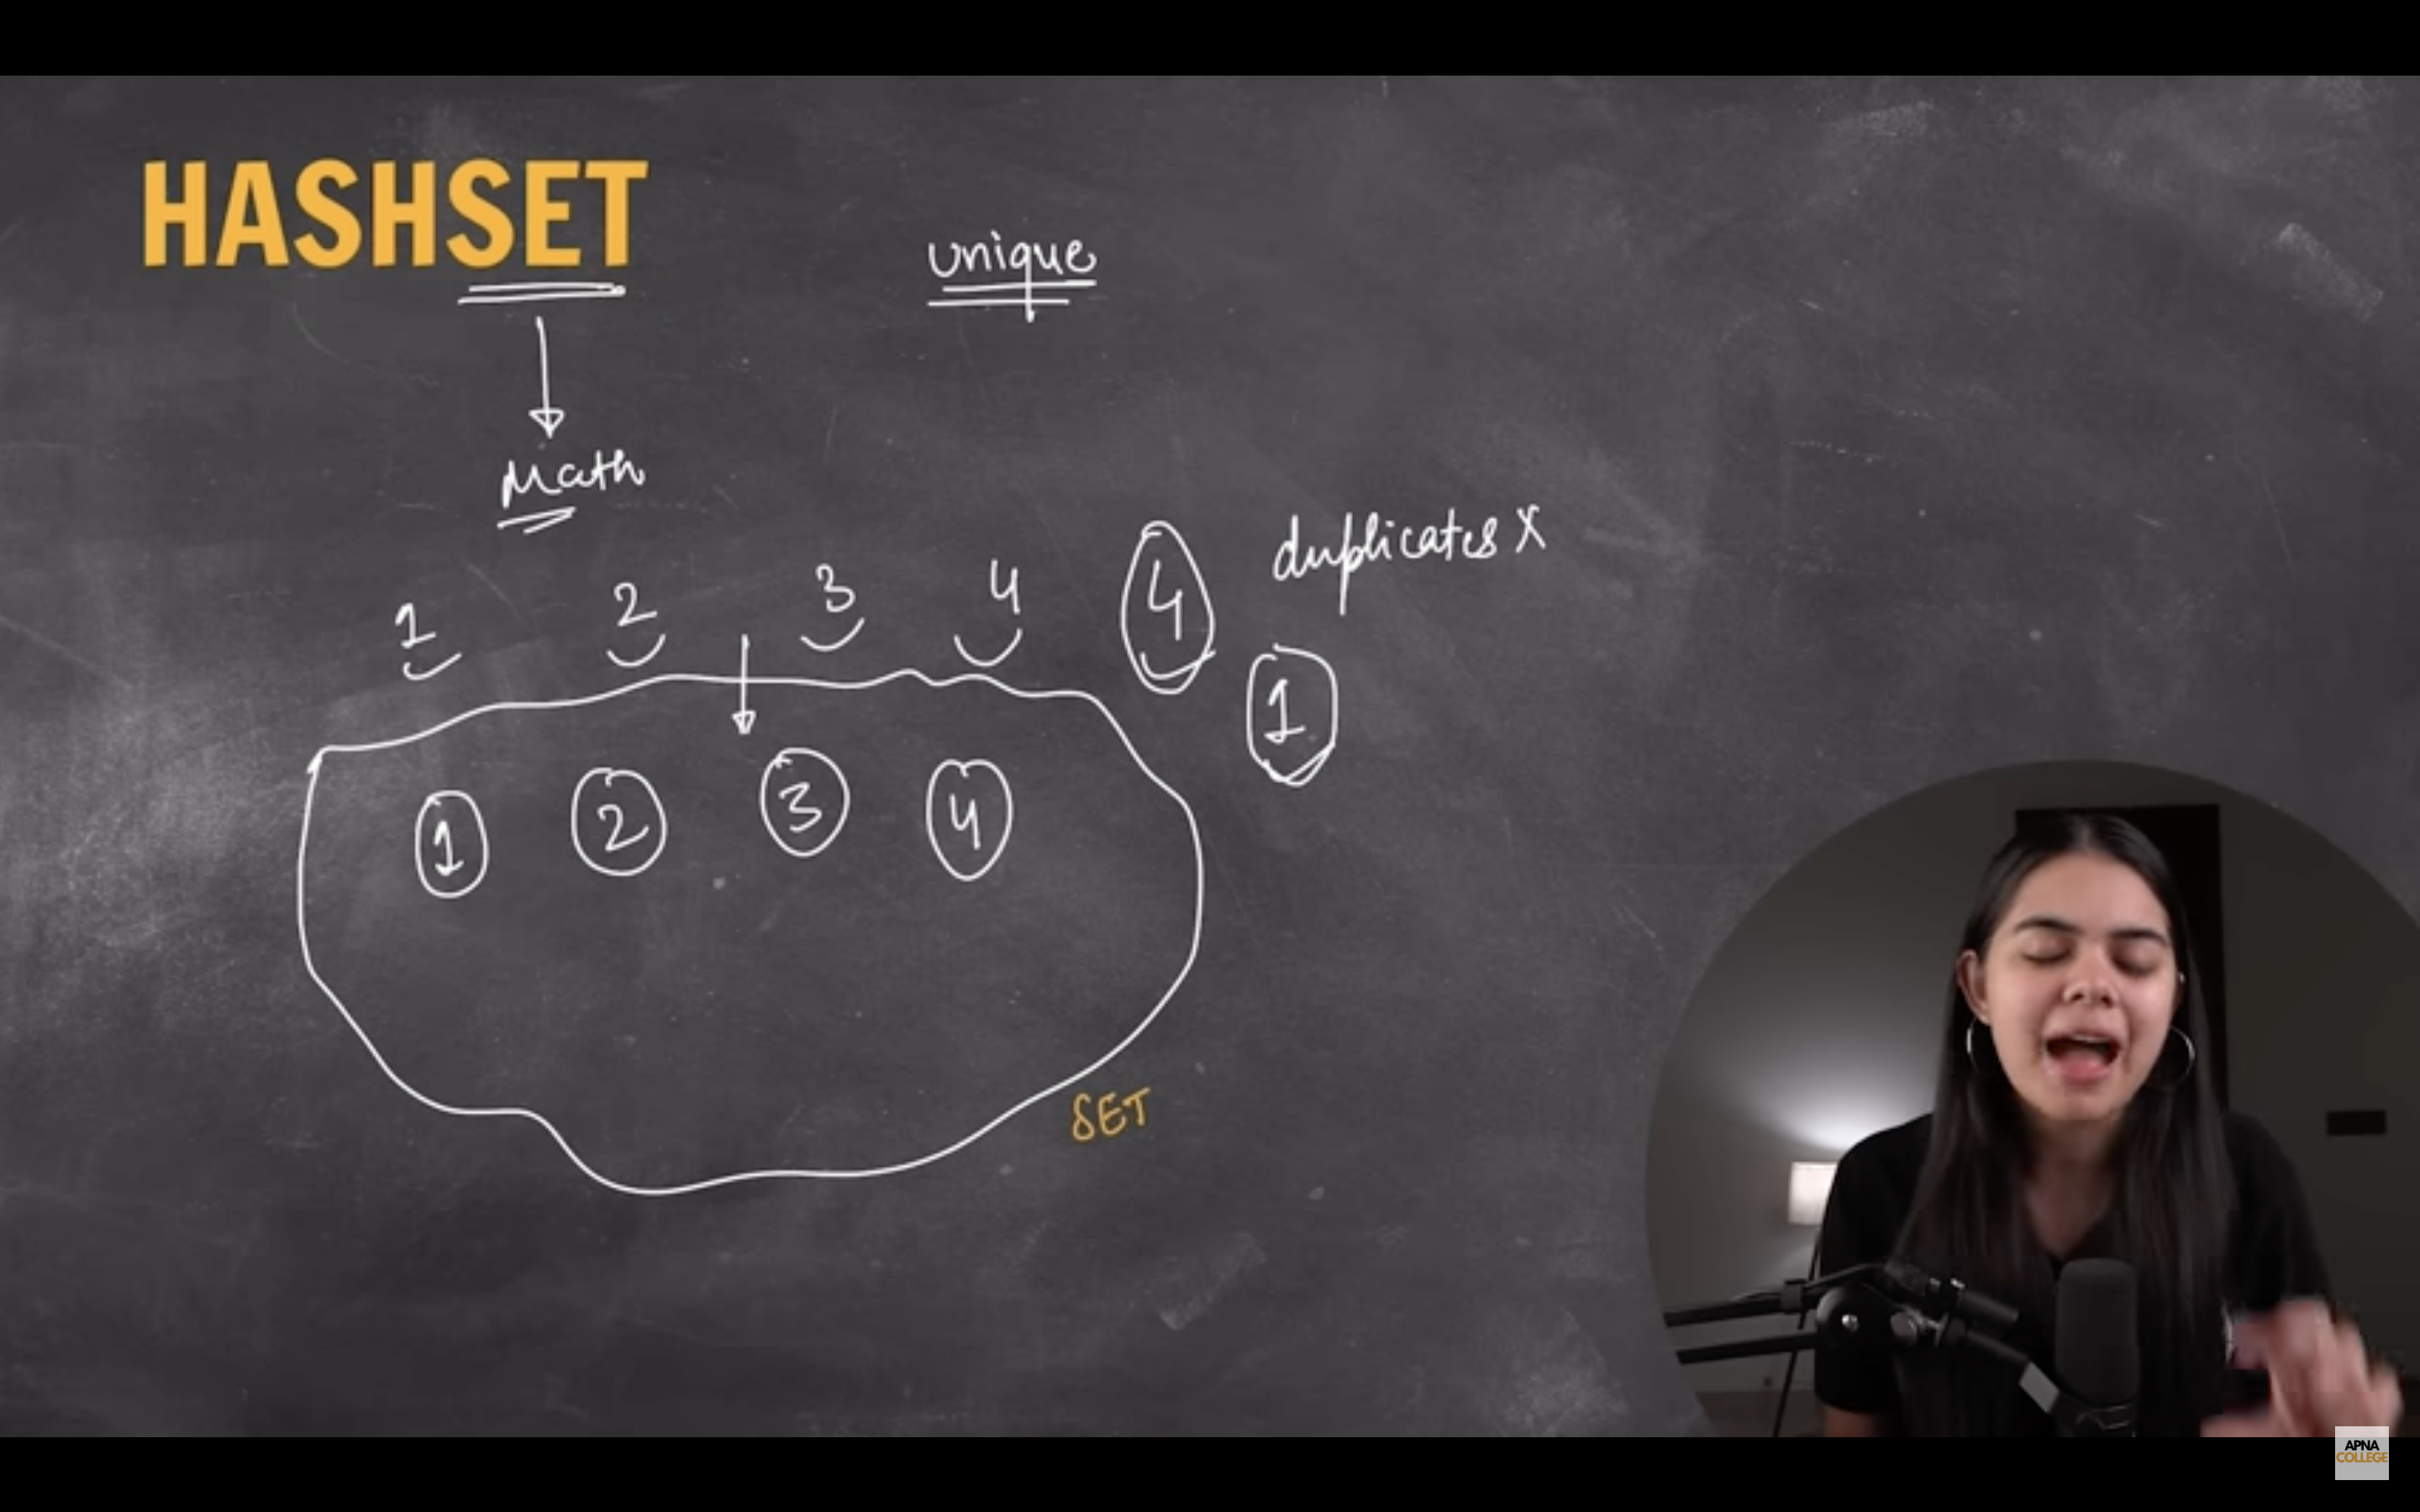 HASHSET
unique
Math
duplicates X
1 2 3 4 4
1
1 2 3 4
SET
APNA
COLLEGE